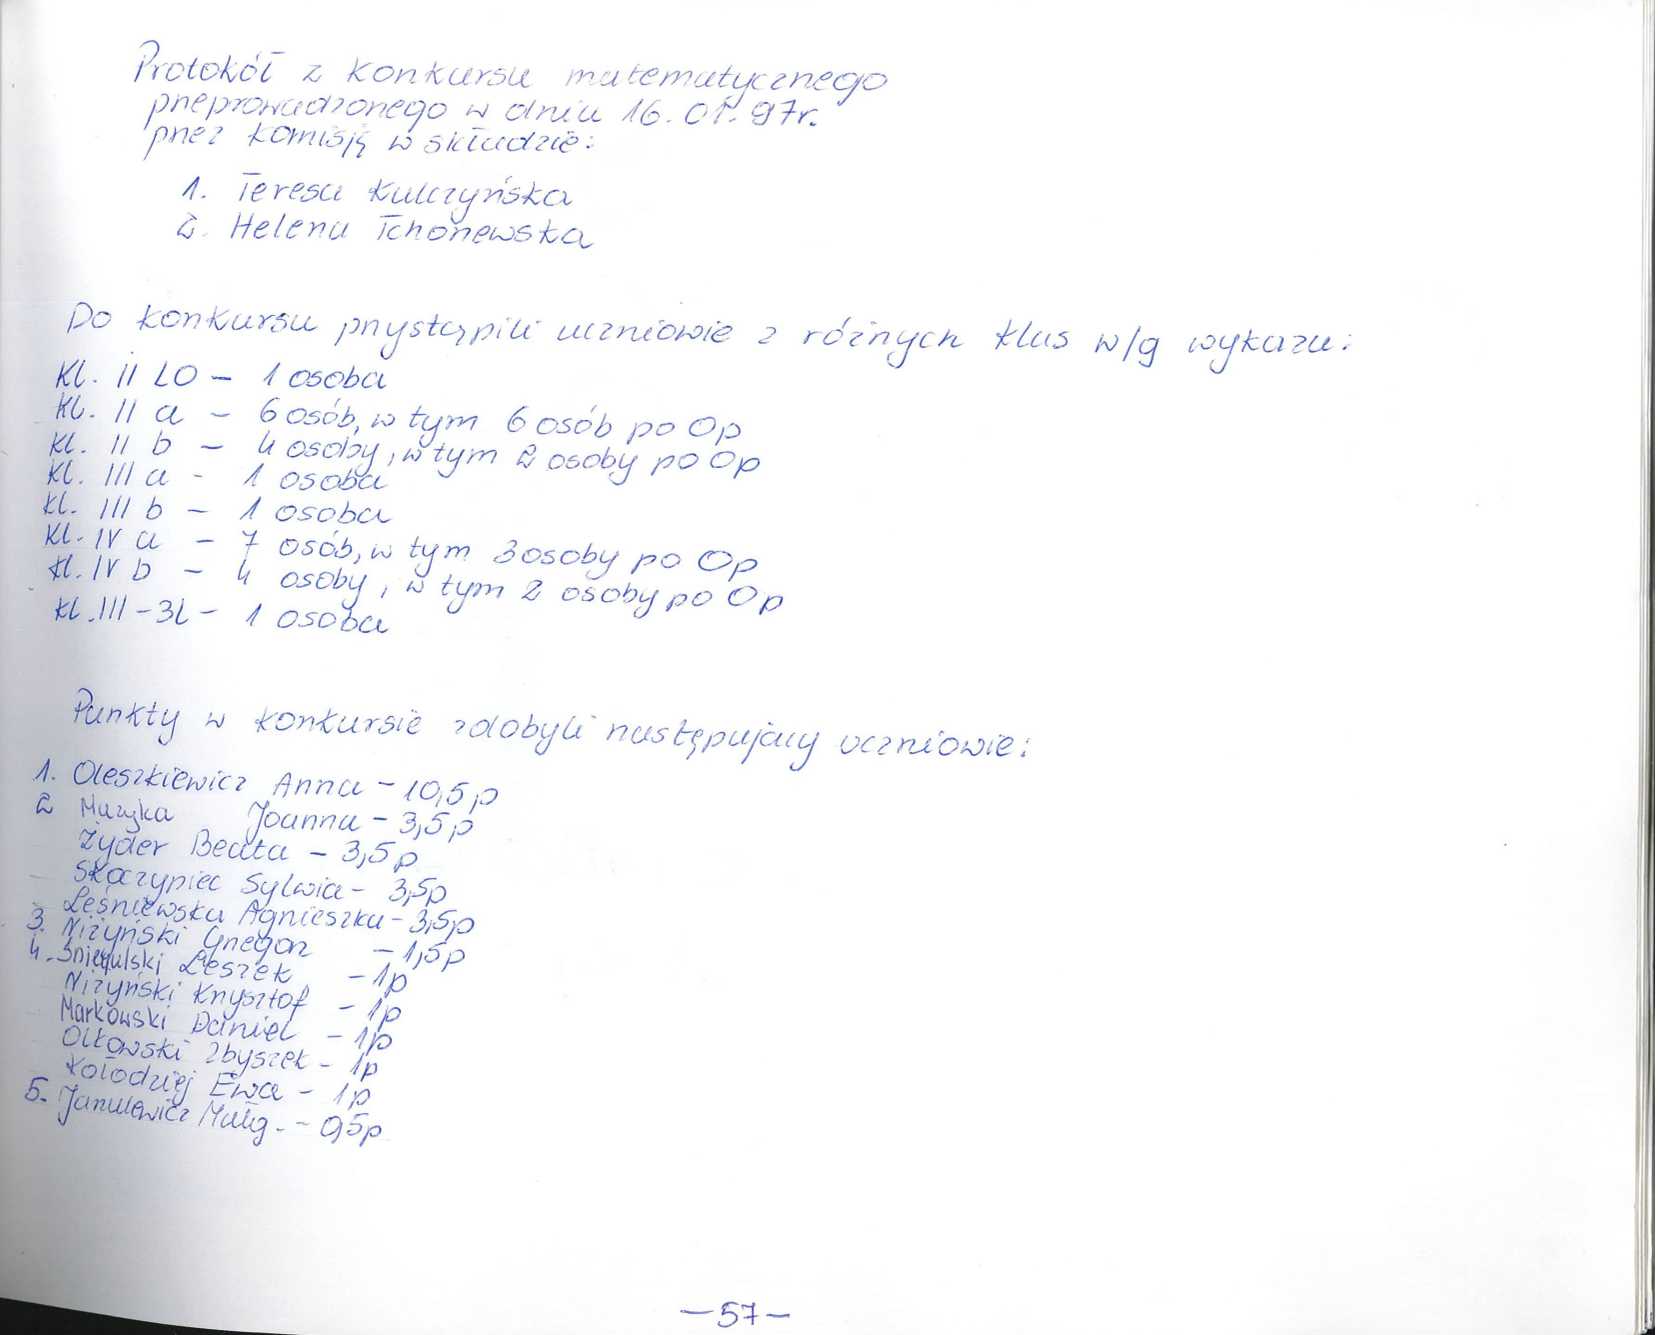 Protokół z konkursu matematycznego
przeprowadzonego w dniu 16.01.97r.
przez komisję w składzie:
1. Teresa Kulczyńska
2. Helena Tchorzewska
Do konkursu przystąpili uczniowie z różnych klas w/g wykazu:
Kl. II LO - 1 osoba
Kl. II a - 6 osób, w tym 6 osób po Op
Kl. II b - 4 osoby, w tym 2 osoby po Op
Kl. III a - 1 osoba
Kl. III b - 1 osoba
Kl. IV a - 7 osób, w tym 3 osoby po Op
Kl. IV b - 4 osoby, w tym 2 osoby po Op
Kl. III - 3L - 1 osoba
Punkty w konkursie zdobyli następujący uczniowie:
1. Oleszkiewicz Anna - 10,5 p
2 Muzyka Joanna - 3,5 p
Żyder Beata - 3,5 p
Skoczypiec Sylwia - 3,5p
Leśniewska Agnieszka - 3,5p
3. Niżyński Grzegorz - 1,5p
4. Śniegulski Leszek - 1p
Niżyński Krzysztof - 1p
Markowski Daniel - 1p
Olkowski Zbyszek - 1p
Kołodziej Ewa - 1p
5. Janulewicz Małg. - 0,5p
-57-